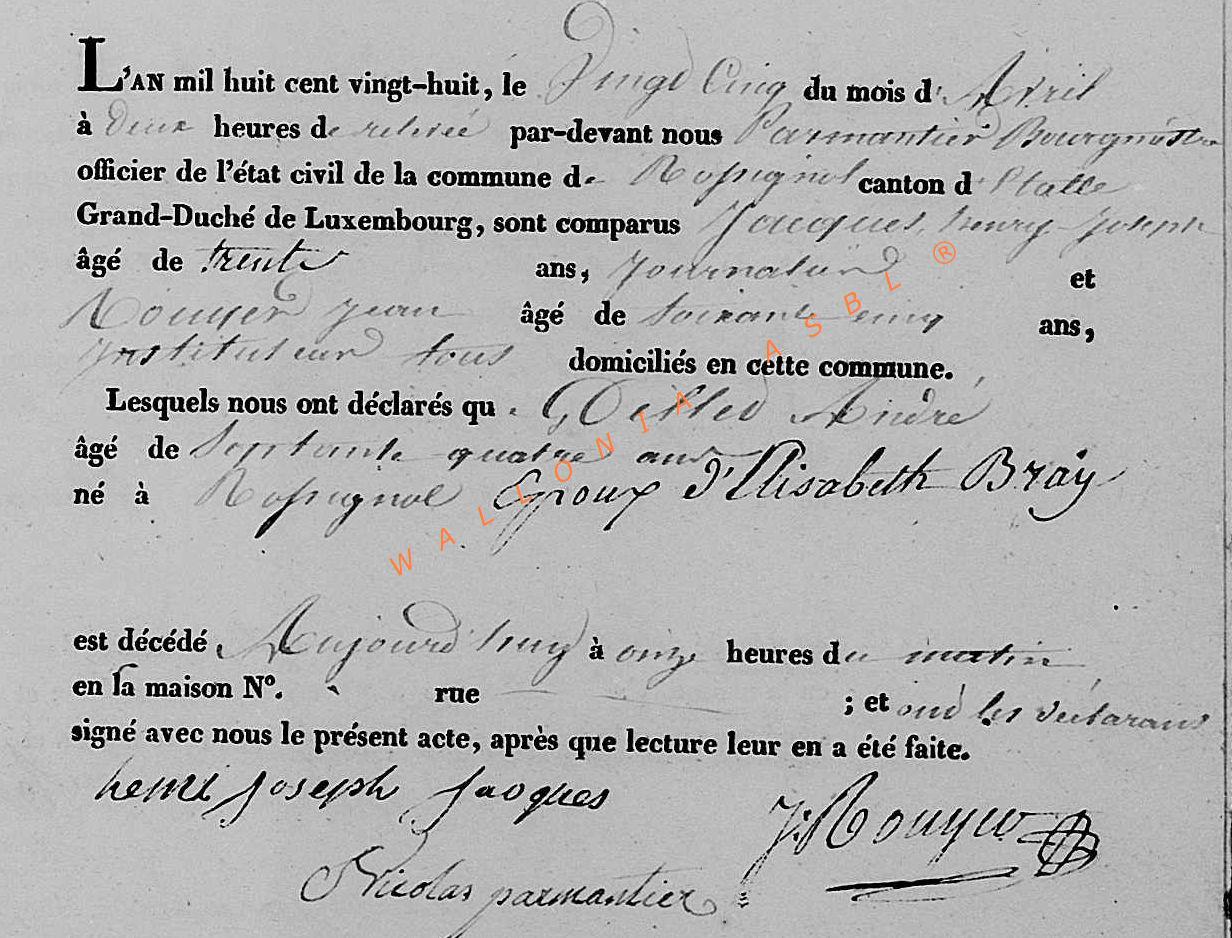 L'AN mil huit cent vingt-huit, le Vingt Cinq du mois d'Avril
à Deux heures de relevée par-devant nous Parmantier Bourgmestre
officier de l'état civil de la commune de Rossignol canton d'Etalle
Grand-Duché de Luxembourg, sont comparus Jacques henry Joseph
âgé de trente ans, Journalier et
Rouyer jean âgé de soixante cinq ans,
Instituteur tous domiciliés en cette commune.
Lesquels nous ont déclarés que Gillet André
âgé de Septante quatre ans
né à Rossignol Epoux d'Elisabeth Bray
est décédé Aujourd'huy à onze heures du matin
en la maison N°. rue ; et ond les déclarans
signé avec nous le présent acte, après que lecture leur en a été faite.
henri Joseph Jacques
J: Rouyer
Nicolas parmantier
WALLONIA ASBL ®